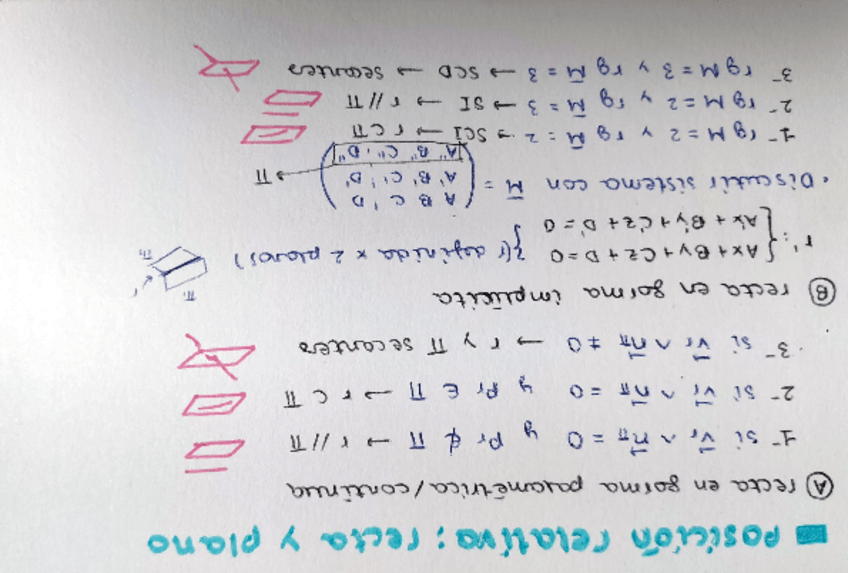 posición relativa: recta y plano
A recta en forma paramétrica/continua
1- si v⃗r ∧ n⃗π = 0 y Pr ∉ π → r // π
2- si v⃗r ∧ n⃗π = 0 y Pr ∈ π → r ⊂ π
3- si v⃗r ∧ n⃗π ≠ 0 → r y π secantes
B recta en forma implícita
r': { Ax + By + Cz + D = 0
A'x + B'y + C'z + D' = 0 } (r definida x 2 planos)
r π₁ π₂
• Discutir sistema con M̄ = ( A B C | D
A' B' C' | D'
A'' B'' C'' | D'' ) → π
1- rg M = 2 y rg M̄ = 2 → SCI → r ⊂ π
2- rg M = 2 y rg M̄ = 3 → SI → r // π
3- rg M = 3 y rg M̄ = 3 → SCD → secantes